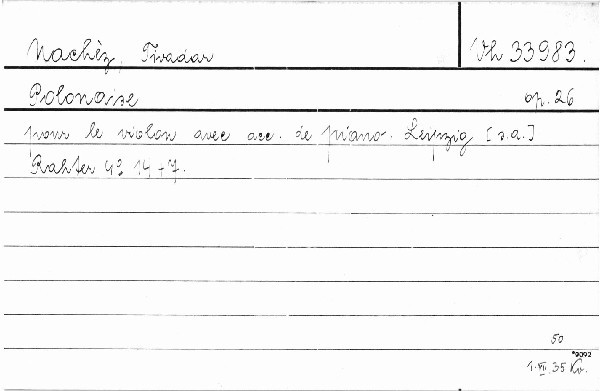 Nachèz, Tivadar Vh 33983.
Polonaise op. 26
pour le violon avec acc. de piano. Leipzig [s.a.]
Rahter 4° 14+7.
50
*9092
1.VII.35 Kv.